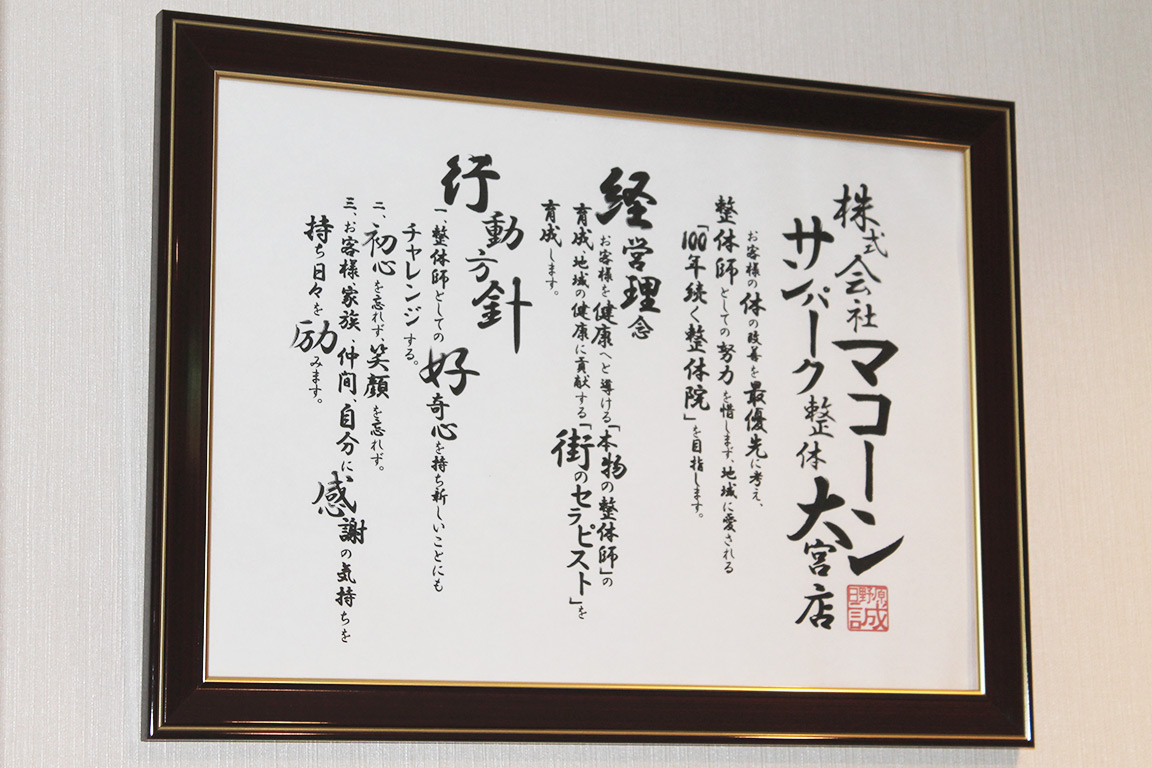 株式会社マコーン
サンパーク整体大宮店
お客様の体の改善を最優先に考え、
整体師としての努力を惜しまず、地域に愛される
「100年続く整体院」を目指します。
経営理念
お客様を健康へと導ける「本物の整体師」の
育成、地域の健康に貢献する「街のセラピスト」を
育成します。
行動方針
一、整体師としての好奇心を持ち新しいことにも
チャレンジする。
二、初心を忘れず、笑顔を忘れず。
三、お客様、家族、仲間、自分に、感謝の気持ちを
持ち日々を励みます。
日野原誠